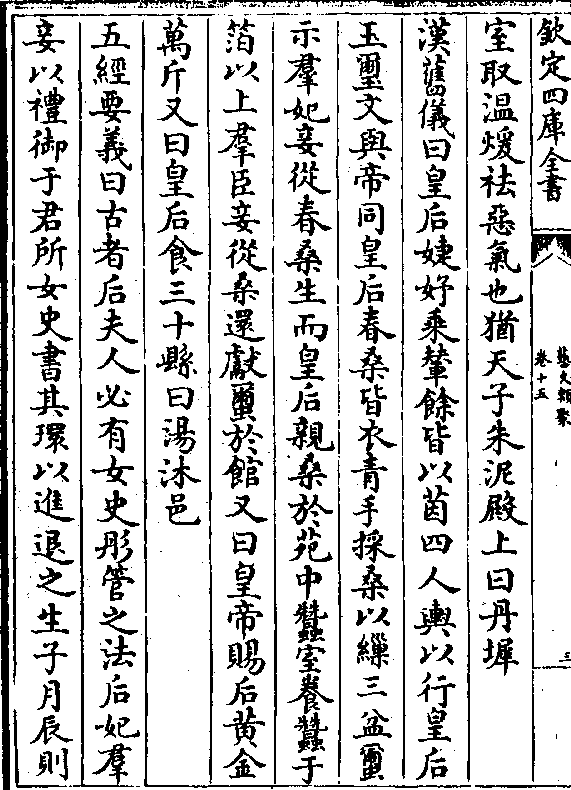 欽定四庫全書
藝文類聚
卷十五
三
室取温煖袪惡氣也猶天子朱泥殿上曰丹墀
漢舊儀曰皇后婕妤乘輦餘皆以茵四人輿以行皇后
玉璽文與帝同皇后春桑皆衣青手採桑以繅三盆璽
示羣妃妾從春桑生而皇后親桑於苑中蠶室養蠶于
箔以上羣臣妾從桑還獻璽於館又曰皇帝賜后黄金
萬斤又曰皇后食三十縣曰湯沐邑
五經要義曰古者后夫人必有女史彤管之法后妃羣
妾以禮御于君所女史書其環以進退之生子月辰則